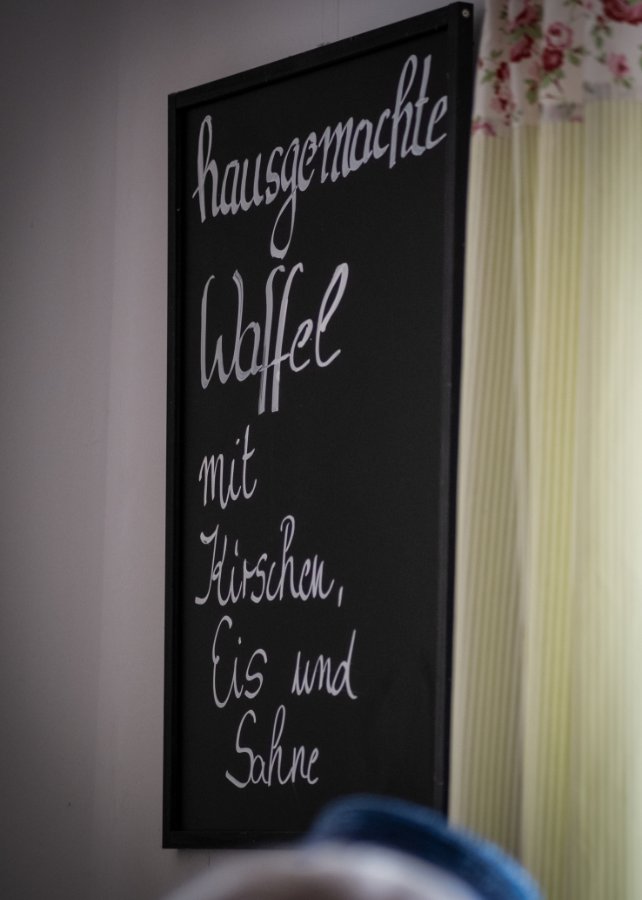 hausgemachte
Waffel
mit
Kirschen,
Eis und
Sahne